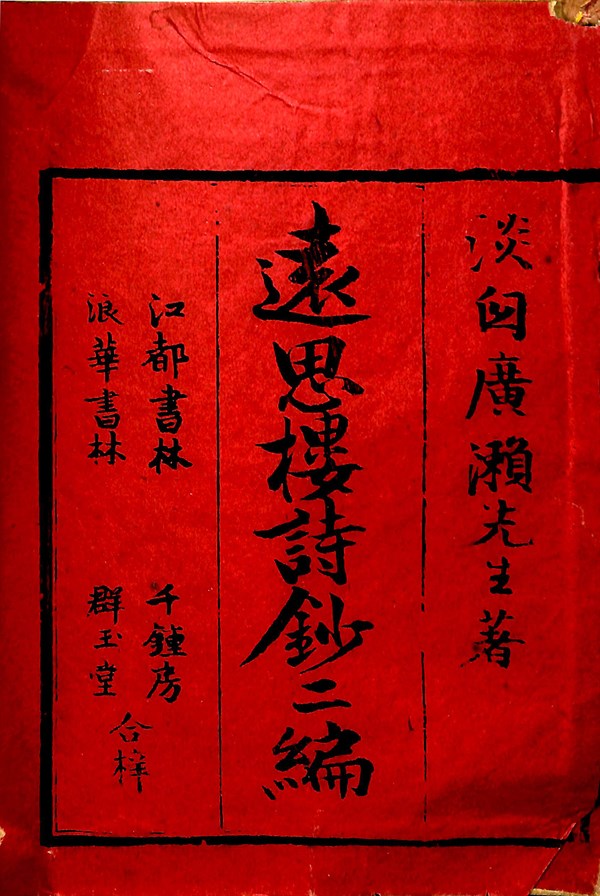 淡囱廣瀨先生著
遠思樓詩鈔二編
江都書林 千鍾房
浪華書林 群玉堂
合梓